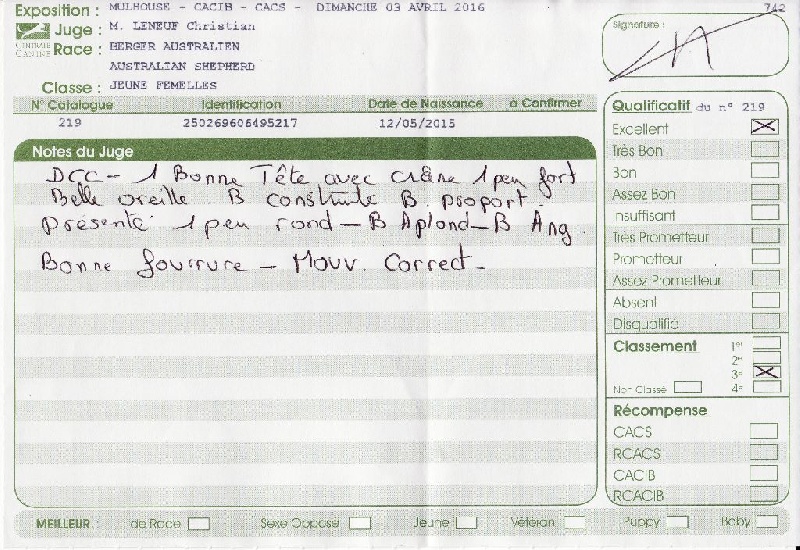 Exposition : MULHOUSE - CACIB - CACS - DIMANCHE 03 AVRIL 2016
742
Juge : M. LENEUF Christian
CENTRALE CANINE
Race : BERGER AUSTRALIEN
AUSTRALIAN SHEPHERD
Classe : JEUNE FEMELLES
Signature :
N° Catalogue Identification Date de Naissance à Confirmer
219 250269606495217 12/05/2015
Notes du Juge
DCC - 1 Bonne Tête avec crâne 1 peu fort
Belle oreille B construite B. proport.
Présenté 1 peu rond - B Aplond - B Ang.
Bonne fourrure - Mouv. Correct -
Qualificatif du n° 219
Excellent
Très Bon
Bon
Assez Bon
Insuffisant
Très Prometteur
Prometteur
Assez Prometteur
Absent
Disqualifié
Classement 1er
2e
3e
Non Classé 4e
Récompense
CACS
RCACS
CACIB
RCACIB
MEILLEUR : de Race Sexe Opposé Jeune Vétéran Puppy Baby